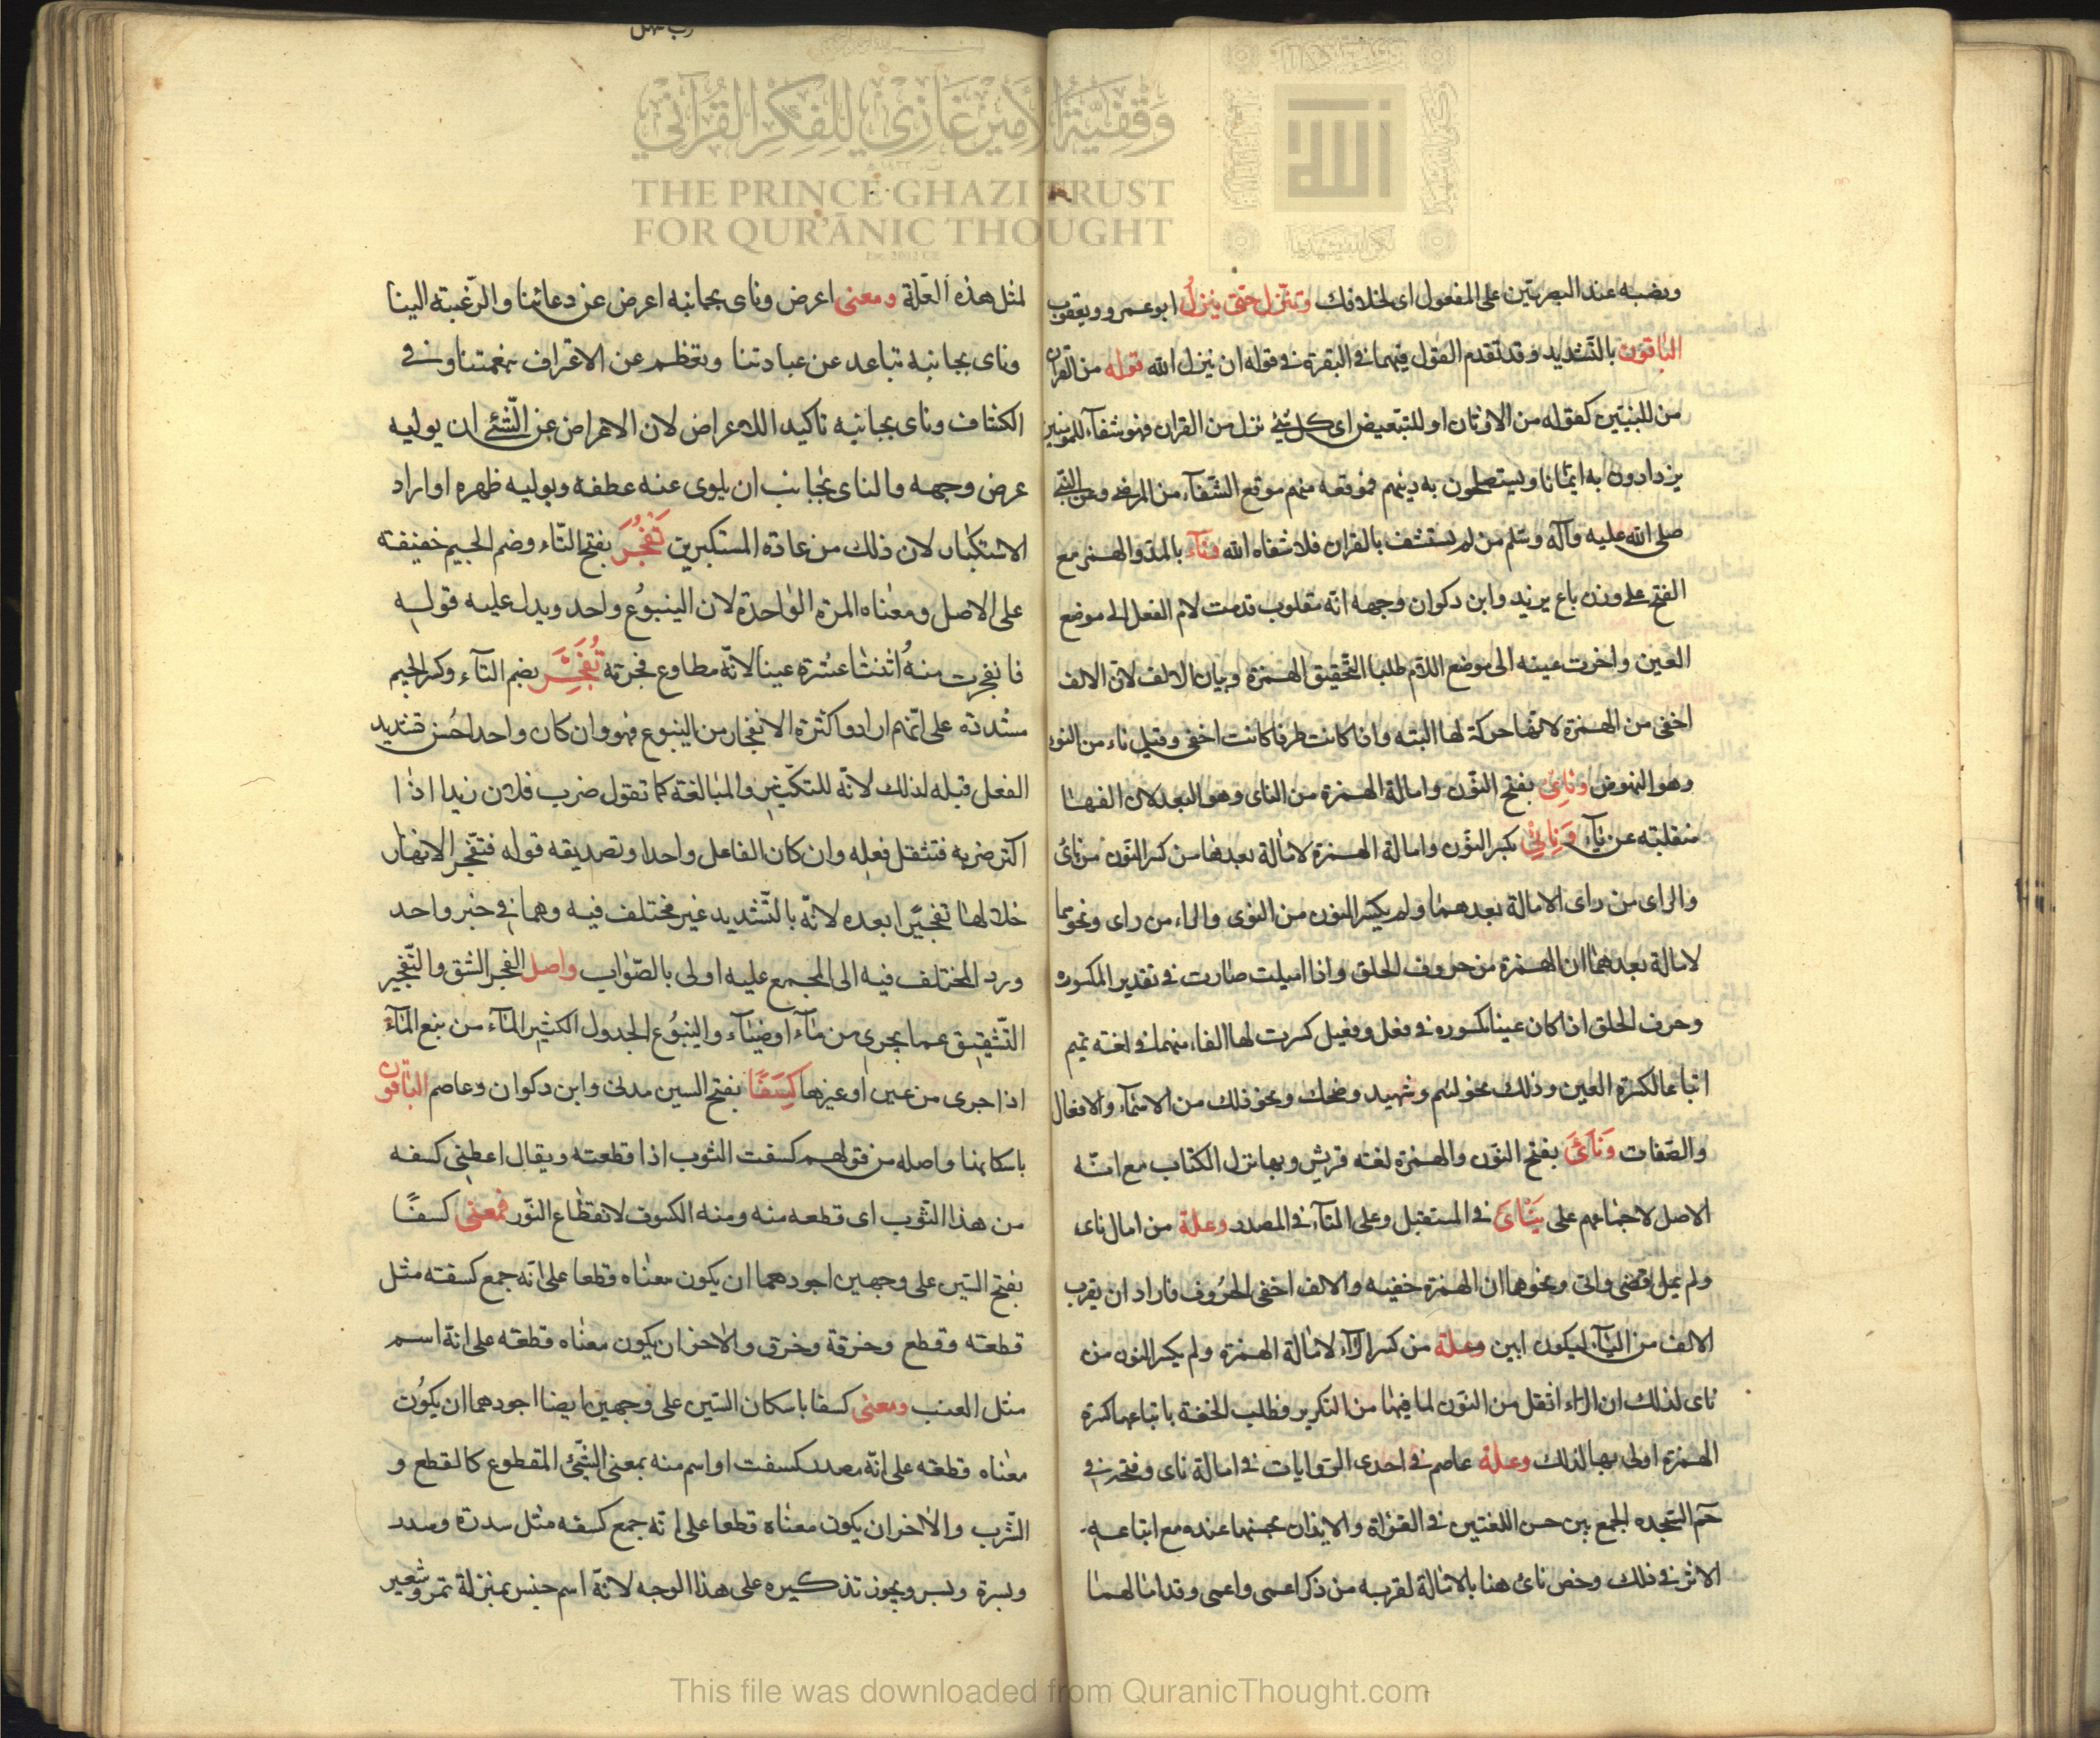 وَقْفِيَّةُ الأَمِيرْ غَازِي لِلْفِكْرِ القُرْآنِي
THE PRINCE GHAZI TRUST
FOR QUR'ĀNIC THOUGHT
ونصبه عند البصريّين على المفعول اى لخلافك وتنزّل حتى ينزل ابو عمرو ويعقوب
الباقون بالتشديد وقد تقدم القول فيهما فى البقرة فى قوله ان ينزل الله قوله من القران
من للتبيين كقوله من الاوثان او للتبعيض اى كل شئ نزل من القران فهو شفآء للمومنين
يزدادون به ايمانا ويستصلحون به دينهم فموقعه منهم موقع الشفآء من المرضى وعن النبى
صلى الله عليه وآله وسلم من لم يستشف بالقران فلا شفاه الله ونآء بالمد والهمز مع
الفتح على وزن باع يريد وابن ذكوان وجهه انه مقلوب قدمت لام الفعل الى موضع
العين واخرت عينه الى موضع اللام طلبا لتحقيق الهمزة وبيان الالف لان الالف
اخفى من الهمزة لانها حركة لها البته واذا كانت طرفا كانت اخفى وقيل ناء من النوء
وهو النهوض ونائ بفتح النون وامالة الهمزة من الناى وهو البعد لان الفها
منقلبته عن يآء ونائ بكسر النون وامالة الهمزة لامالة بعدها من كسر النون من نائ
والراى من راى الامالة بعدهما ولم يكسر النون من النوى والراء من راى ونحوهما
لامالة بعدهما ان الهمزة من حروف الحلق واذا اميلت صارت فى تقدير المكسورة
وحرف الحلق اذا كان عينا مكسوره فى فعل وفعيل كسرت لها الفاء منهما فى لغة تميم
اتباعا لكسرة العين وذلك نحو لئيم وشهيد وضحك ونحو ذلك من الاسمآء والافعال
والصفات ونآئ بفتح النون والهمزة لغة قريش وبها نزل الكتاب مع انه
الاصل لاجماعهم على ينائ فى المستقبل وعلى المنآء فى المصدر وعلة من امال ناى
ولم يمل قضى واتى ونحوها ان الهمزة خفيه والالف اخفى الحروف فاراد ان يقرب
الالف من اليآء ليكون ابين وعلة من كسر الرآء لامالة الهمزة ولم يكسر النون من
ناى لذلك ان الراء اثقل من النون لما فيها من التكرير فطلب الخفة باتباعها كسرة
الهمزة اولى بها لذلك وعلة عاصم فى احدى الروايات فى امالة ناى وفتحه فى
حم السجده الجمع بين حسن اللغتين فى القراة والايذان بحسنها عنده مع اتباعه
الاثر فى ذلك وخص نائ هنا بالامالة لقربه من ذكر اعمى واعمى وقد امالهما
لمثل هذه العلة ومعنى اعرض وناى بجانبه اعرض عن دعائنا والرغبته الينا
وناى بجانبه تباعد عن عبادتنا وتعظم عن الاعتراف بنعمتنا وفى
الكشاف وناى بجانبه تاكيد للاعراض لان الاعراض عن الشئ ان يوليه
عرض وجهه والناى بجانب ان يلوى عنه عطفه ويوليه ظهره او اراد
الاستكبار لان ذلك من عادة المستكبرين تَفْجُرَ بفتح التاء وضم الجيم خفيفته
على الاصل ومعناه المرة الواحدة لان الينبوع واحد ويدل عليه قوله
فانفجرت منه اثنتا عشرة عينا لانه مطاوع فجرته تُفَجِّرَ بضم التآء وكسر الجيم
مشددته على انهم ارادوا كثرة الانفجار من الينبوع فهو وان كان واحدا حسن تشديد
الفعل قبله لذلك لانه للتكثير والمبالغة كما تقول ضرب فلان زيدا اذا
اكثر ضربه فتثقل فعله وان كان الفاعل واحدا وتصديقه قوله فتفجر الانهار
خلالها تفجيرا بعده لانه بالتشديد غير مختلف فيه وهما فى خبر واحد
ورد المختلف فيه الى المجمع عليه اولى بالصواب واصل الفجر الشق والتفجير
التشقيق عما يجرى من مآء او ضيآء والينبوع الجدول الكثير المآء من نبع المآء
اذا جرى من عين او غيرها كِسَفًا بفتح السين مدنى وابن ذكوان وعاصم الباقون
باسكانها واصله من قولهم كسفت الثوب اذا قطعته ويقال اعطنى كسفه
من هذا الثوب اى قطعه منه ومنه الكسوف لانقطاع النور فمعنى كسفًا
بفتح السين على وجهين اجودهما ان يكون معناه قطعا على انه جمع كسفته مثل
قطعته وقطع وخرقة وخرق والاخر ان يكون معناه قطعه على انه اسم
مثل العنب ومعنى كسفا باسكان السين على وجهين ايضا اجودهما ان يكون
معناه قطعه على انه مصدر كسفت او اسم منه بمعنى الشئ المقطوع كالقطع و
الشرب والاخر ان يكون معناه قطعا على انه جمع كسفه مثل سدرة وسدر
وبسرة وبسر ويجوز تذكيره على هذا الوجه لانه اسم جنس بمنزلة تمر وشعير
This file was downloaded from QuranicThought.com